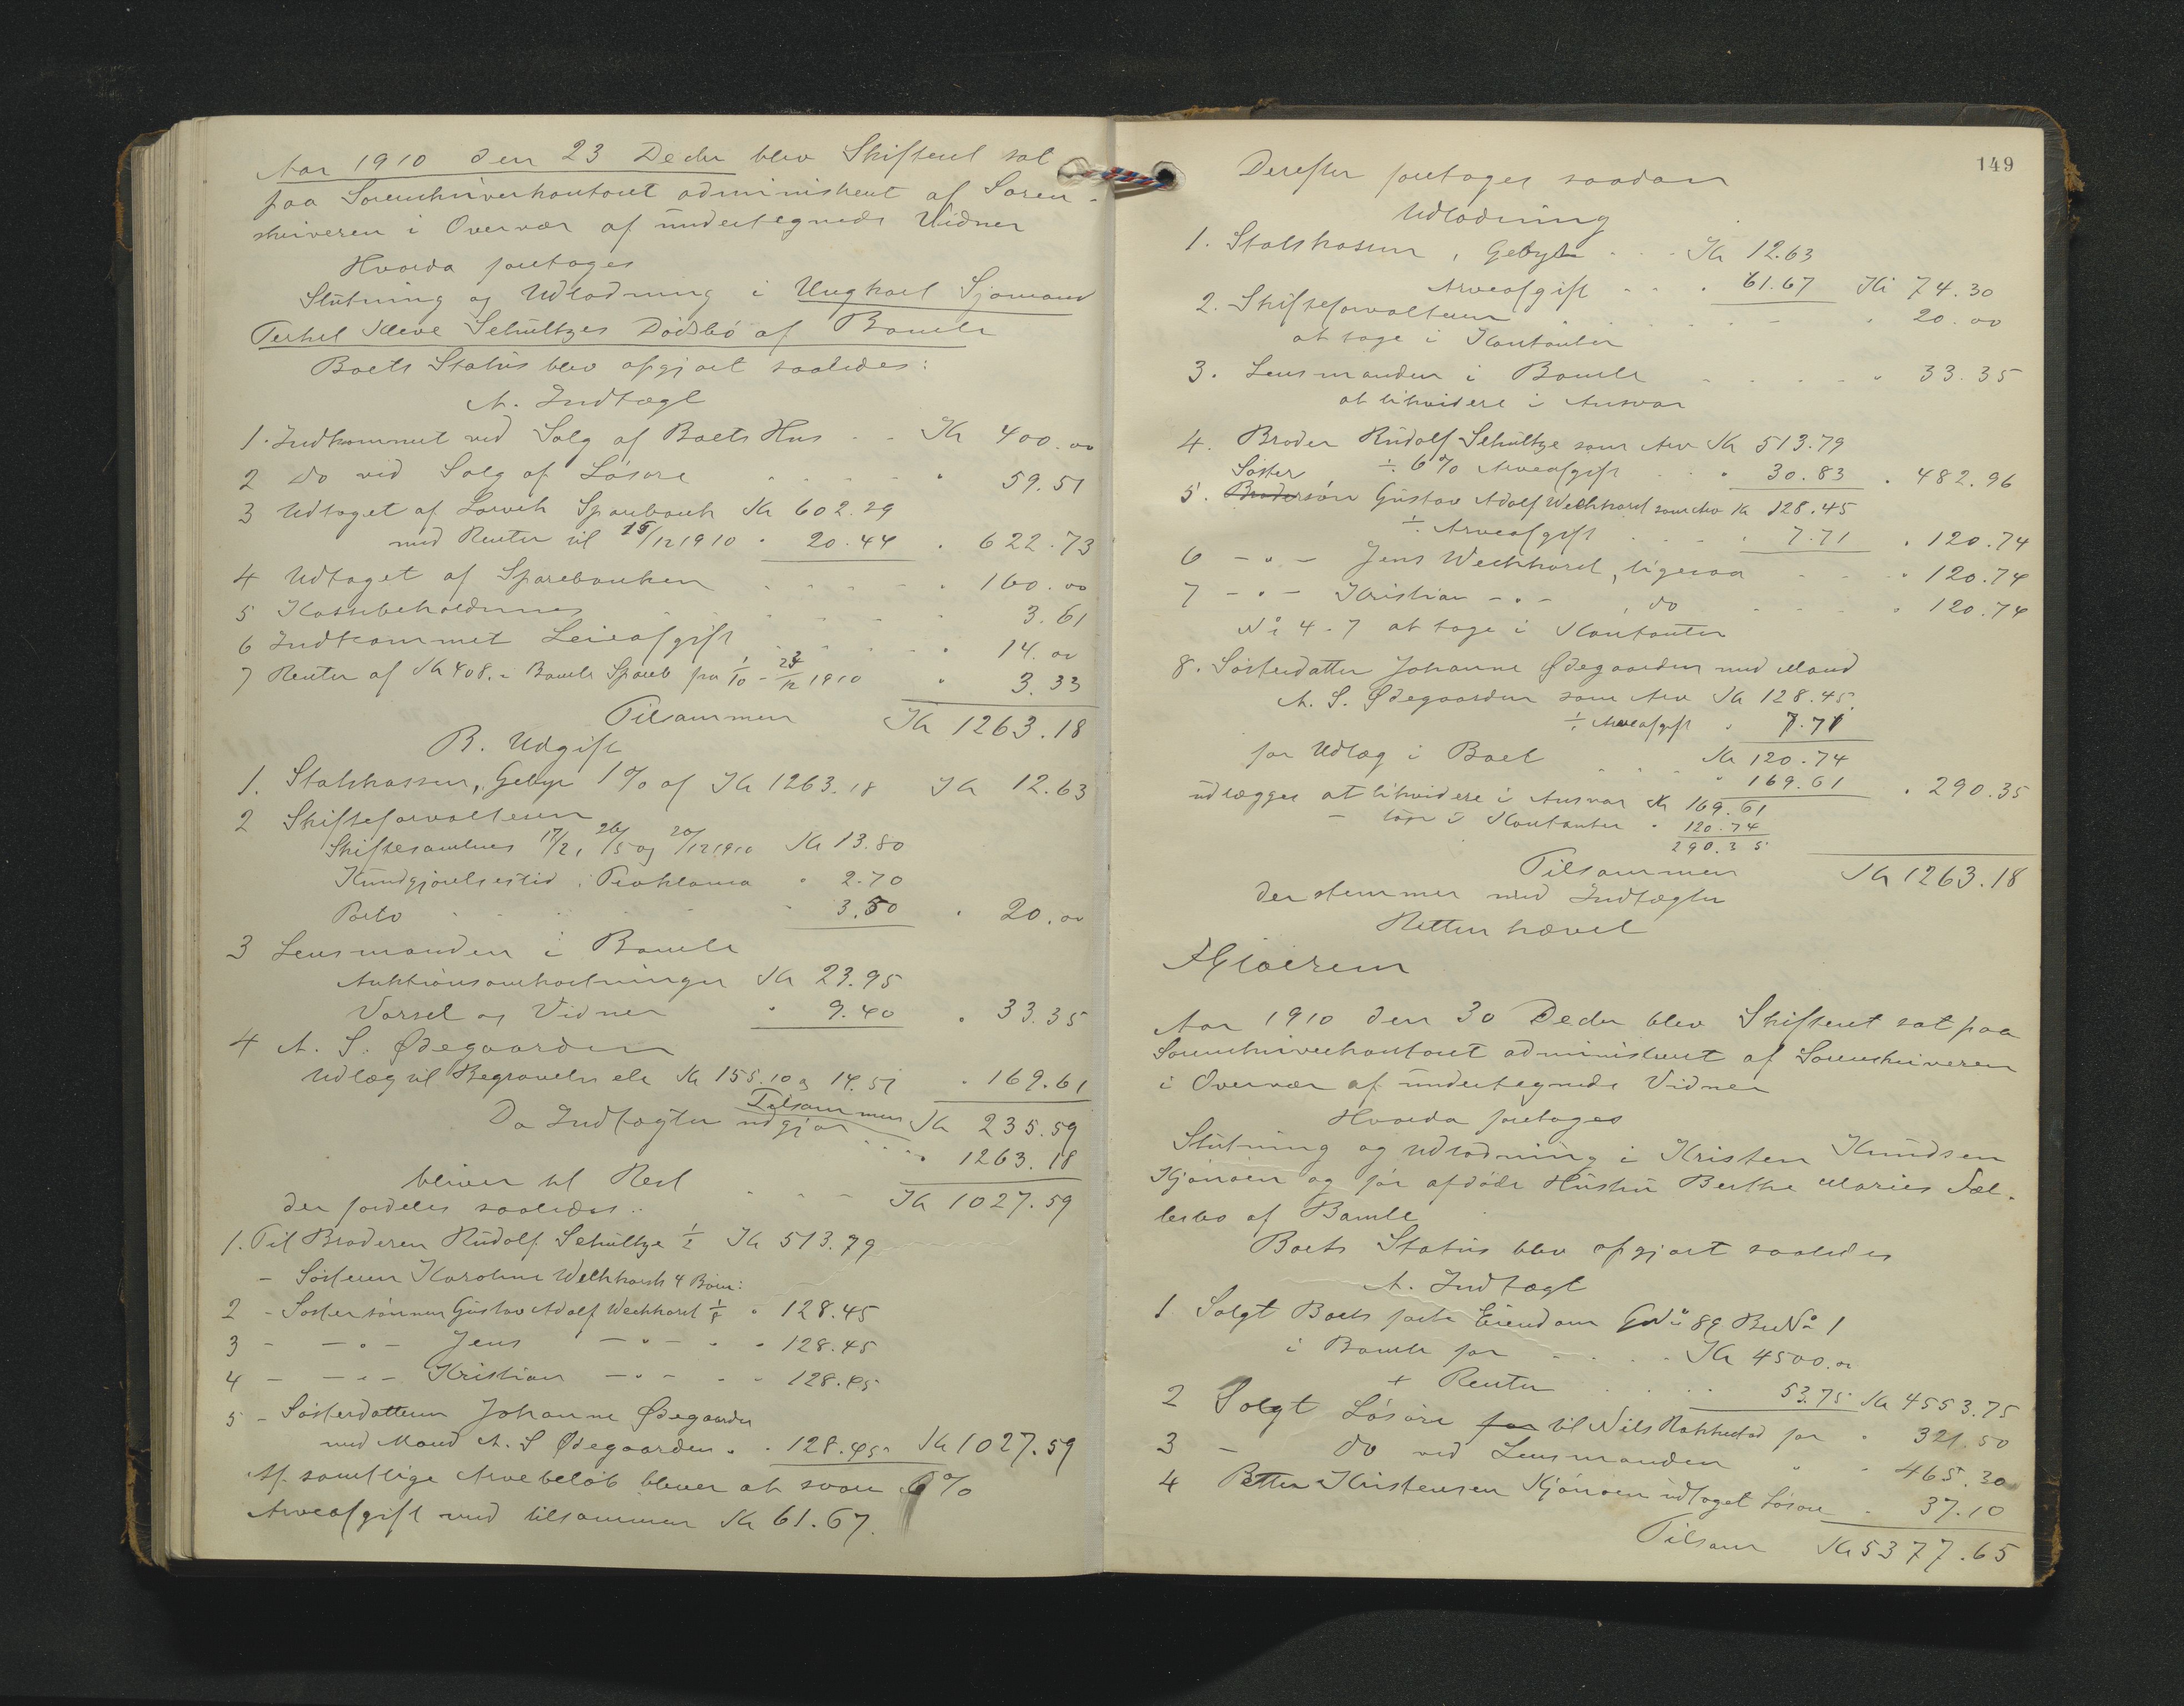 Aar 1910 den 23 Decbr blev Skifteret sat
paa Sorenskriverkontoret administreret af Soren-
skriveren i Overvær af undertegnede Vidner
Hvorda foretoges
Slutning og Udlodning i Ungkarl Sjømand
Terkel Kleve Schultzes Dødsbo af Bamle
Boets Status blev opgjort saaledes:
A. Indtægt
1. Indkommet ved Salg af Boets Hus . . Kr 400.00
2 Do ved Salg af Løsøre . . . . . " 59.51
3 Udtaget af Larvik Sparebank Kr 602.29
med Renter til 15/12 1910 " 20.44 " 622.73
4 Udtaget af Sparebanken . . . . " 160.00
5 Kassebeholdning . . . . . 3.61
6 Indkommet Leieafgift . . . . " 14.00
7 Renter af Kr 408.- Bamle Spareb fra 1/10 - 23/12 1910 " 3.33
Tilsammen Kr 1263.18
B. Udgift
1. Statskassen, Gebyr 1 % af Kr 1263.18 Kr 12.63
2 Skifteforvalteren
Skiftesamlinger 17/2, 26/5 og 20/12 1910 Kr 13.80
Kundgjørelsestid. Proklama " 2.70
Porto . . . . . " 3.50 " 20.00
3 Lensmanden i Bamle
Auktionsomkostninger Kr 23.95
Varsel og Vidner " 9.40 " 33.35
4 A. S. Ødegaarden
Udlæg til Begravelse etc Kr 155.10 og 14.51 " 169.61
Tilsammen Kr 235.59
Da Indtægten udgjør . . . . " 1263.18
bliver til Rest . . . Kr 1027.59
der fordeles saaledes:
1. Til Broderen Rudolf Schultze 1/2 Kr 513.79
- Søsteren Karoline Welkhorsts 4 Børn:
2 - Søstersønnen Gustav Adolf Weckhorst 1/8 " 128.45
3 - - " - Jens - " - " " 128.45
4 - - " - Kristian - " - " " 128.45
5 - Søsterdatteren Johanne Ødegaarden
med Mand A. S Ødegaarden " " 128.45 Kr 1027.59
Af samtlige Arvebeløb bliver at svare 6 %
Arveafgift med tilsammen Kr 61.67.
149
Derefter foretoges saadan
Udlodning
1. Statskassen, Gebyr . . . Kr 12.63
Arveafgift . . . 61.67 Kr 74.30
2. Skifteforvalteren . . . . . . " 20.00
at tage i Kontanter
3. Lensmanden i Bamle . . . . . " 33.35
at likvidere i Ansvar
4. Broder Rudolf Schultze som Arv Kr 513.79
÷ 6 % Arveafgift . . " 30.83 " 482.96
Søster
5. Brodersøn Gustav Adolf Welkhorst som Arv Kr 128.45
÷ Arveafgift . . . . " 7.71 " 120.74
6 - " - Jens Weckhorst, ligesaa . . . " 120.74
7 - " - Kristian - " - , do . . . . " 120.74
No 4-7 at tage i Kontanter
8. Søsterdatter Johanne Ødegaarden med Mand
A. S. Ødegaarden som Arv Kr 128.45
÷ Arveafgift " 7.71
Kr 120.74
for Udlæg i Boet . . . . " 169.61 " 290.35
udlægges at likvidere i Ansvar Kr 169.61
- tage i Kontanter " 120.74
290.35
Tilsammen Kr 1263.18
der stemmer med Indtægten
Retten hævet
Aar 1910 den 30 Decbr blev Skifteret sat paa
Sorenskriverkontoret administreret af Sorenskriveren
i Overvær af undertegnede Vidner
Hvorda foretoges
Slutning og Udlodning i Kristen Knudsen
Kjønøen og før afdøde Hustru Berthe Maries Fæl-
lesbo af Bamle
Boets Status blev opgjort saaledes
A. Indtægt
1 Solgt Boets faste Eiendom GNo 89 BrNo 1
i Bamle for . . . . Kr 4500.00
+ Renter . . . . 53.75 Kr 4553.75
2 Solgt Løsøre for til Nils Rakkestad for " 321.50
3 - do ved Lensmanden " " 465.30
4 Petter Kristensen Kjønøen udtaget Løsøre " 37.10
Tilsam Kr 5377.65